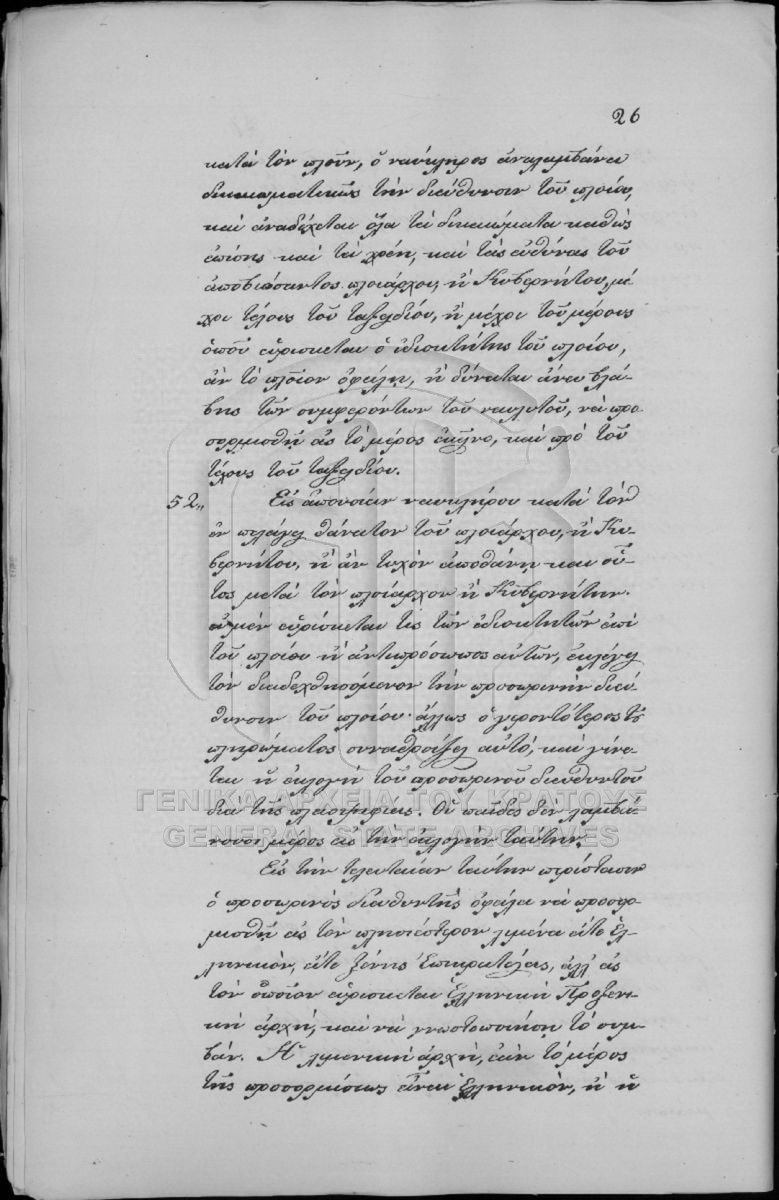 26
κατὰ τὸν πλοῦν, ὁ ναύκληρος ἀναλαμβάνει
δικαιωματικῶς τὴν διεύθυνσιν τοῦ πλοίου,
καὶ ἀναδέχεται ὅλα τὰ δικαιώματα καθὼς
ἐπίσης καὶ τὰ χρέη, καὶ τὰς εὐθύνας τοῦ
ἀποβιώσαντος πλοιάρχου, ἢ Κυβερνήτου, μέ
χρι τέλους τοῦ ταξειδίου, ἢ μέχρι τοῦ μέρους
ὁποῦ εὑρίσκεται ὁ ἰδιοκτήτης τοῦ πλοίου,
ἂν τὸ πλοῖον ὀφείλῃ, ἢ δύναται ἄνευ βλά-
βης τῶν συμφερόντων τοῦ ναυλωτοῦ, νὰ προ
σορμισθῇ εἰς τὸ μέρος ἐκεῖνο, καὶ πρὸ τοῦ
τέλους τοῦ ταξειδίου.
52,, Εἰς ἀπουσίαν ναυκλήρου κατὰ τὸν
ἐν πελάγει θάνατον τοῦ πλοιάρχου, ἢ Κυ-
βερνήτου, ἢ ἂν τυχὸν ἀποθάνῃ καὶ οὗ-
τος μετὰ τὸν πλοίαρχον ἢ Κυβερνήτην.
εἰ μὲν εὑρίσκεται τὶς τῶν ἰδιοκτητῶν ἐπὶ
τοῦ πλοίου ἢ ἀντιπρόσωπος αὐτῶν, ἐκλέγει
τὸν διαδεχθησόμενον τὴν προσωρινὴν διεύ-
θυνσιν τοῦ πλοίου· ἄλλως ὁ γεροντότερος τοῦ
πληρώματος συναθροίζει αὐτὸ, καὶ γίνε-
ται ἡ ἐκλογὴ τοῦ προσωρινοῦ διευθυντοῦ
διὰ τῆς πλειοψηφίας. Οἱ παῖδες δὲν λαμβά-
νουσι μέρος εἰς τὴν ἐκλογὴν ταύτην.
Εἰς τὴν τελευταίαν ταύτην περίστασιν
ὁ προσωρινὸς διευθυντὴς ὀφείλει νὰ προσορ-
μισθῇ εἰς τὸν πλησιέστερον λιμένα εἴτε Ἑλ-
ληνικὸν, εἴτε ξένης Ἐπικρατείας, ἀλλ' εἰς
τὸν ὁποῖον εὑρίσκεται Ἑλληνικὴ Προξενι-
κὴ ἀρχὴ, καὶ νὰ γνωστοποιήσῃ τὸ συμ-
βάν. Ἡ λιμενικὴ ἀρχὴ, ἐὰν τὸ μέρος
τῆς προσορμίσεως εἶναι Ἑλληνικὸν, ἢ ἡ
ΓΕΝΙΚΑ ΑΡΧΕΙΑ ΤΟΥ ΚΡΑΤΟΥΣ
GENERAL STATE ARCHIVES